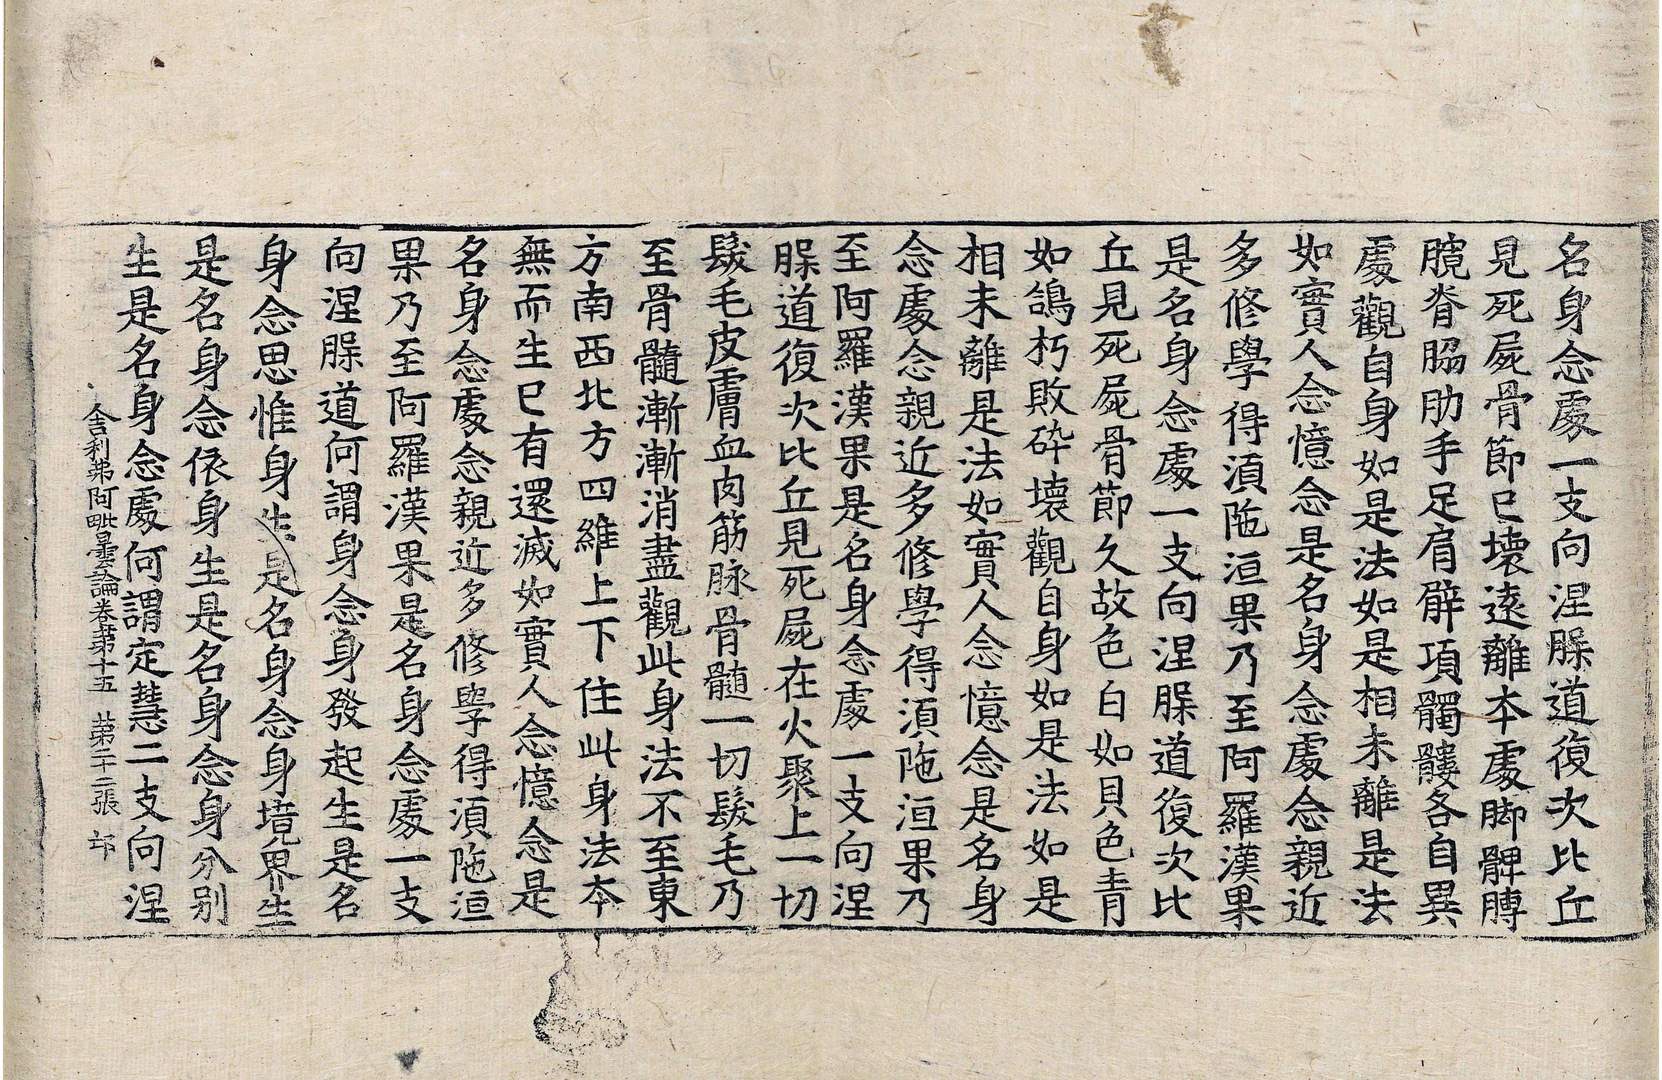 名身念處一支向涅槃道復次比丘
見死屍骨節已壞遠離本處脚髀膞
臗脊脇肋手足肩髀項髑髏各自異
處觀自身如是法如是相未離是法
如實人念憶念是名身念處念親近
多修學得湏陁洹果乃至阿羅漢果
是名身念處一支向涅槃道復次比
丘見死屍骨節久故色白如貝色青
如鴿朽敗碎壞觀自身如是法如是
相未離是法如實人念憶念是名身
念處念親近多修學得湏陁洹果乃
至阿羅漢果是名身念處一支向涅
槃道復次比丘見死屍在火聚上一切
髮毛皮膚血肉筋脉骨髓一切髮毛乃
至骨髓漸漸消盡觀此身法不至東
方南西北方四維上下住此身法本
無而生已有還滅如實人念憶念是
名身念處念親近多修學得湏陁洹
果乃至阿羅漢果是名身念處一支
向涅槃道何謂身念身發起生是名
身念思惟身生是名身念身境界生
是名身念依身生是名身念身分别
生是名身念處何謂定慧二支向涅
舍利弗阿毗曇論卷第十五　第二十二張　邙